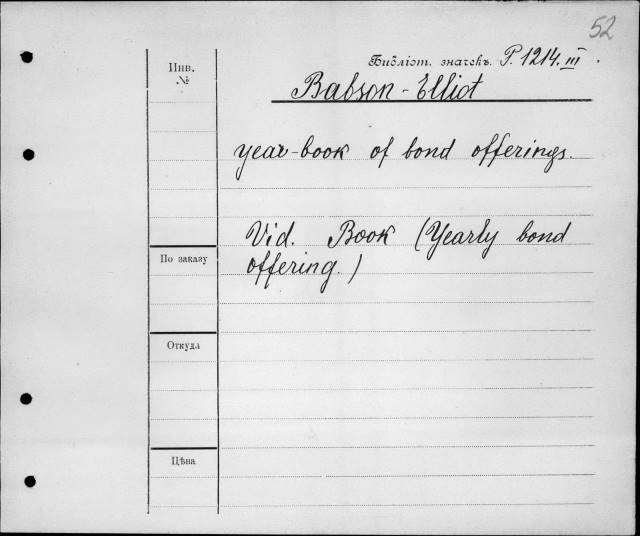 52
Инв.
№
Библіот. значекъ P. 1214. III.
Babson-Elliot
year-book of bond offerings.
Vid. Book (Yearly bond
offering.)
По заказу
Откуда
Цѣна